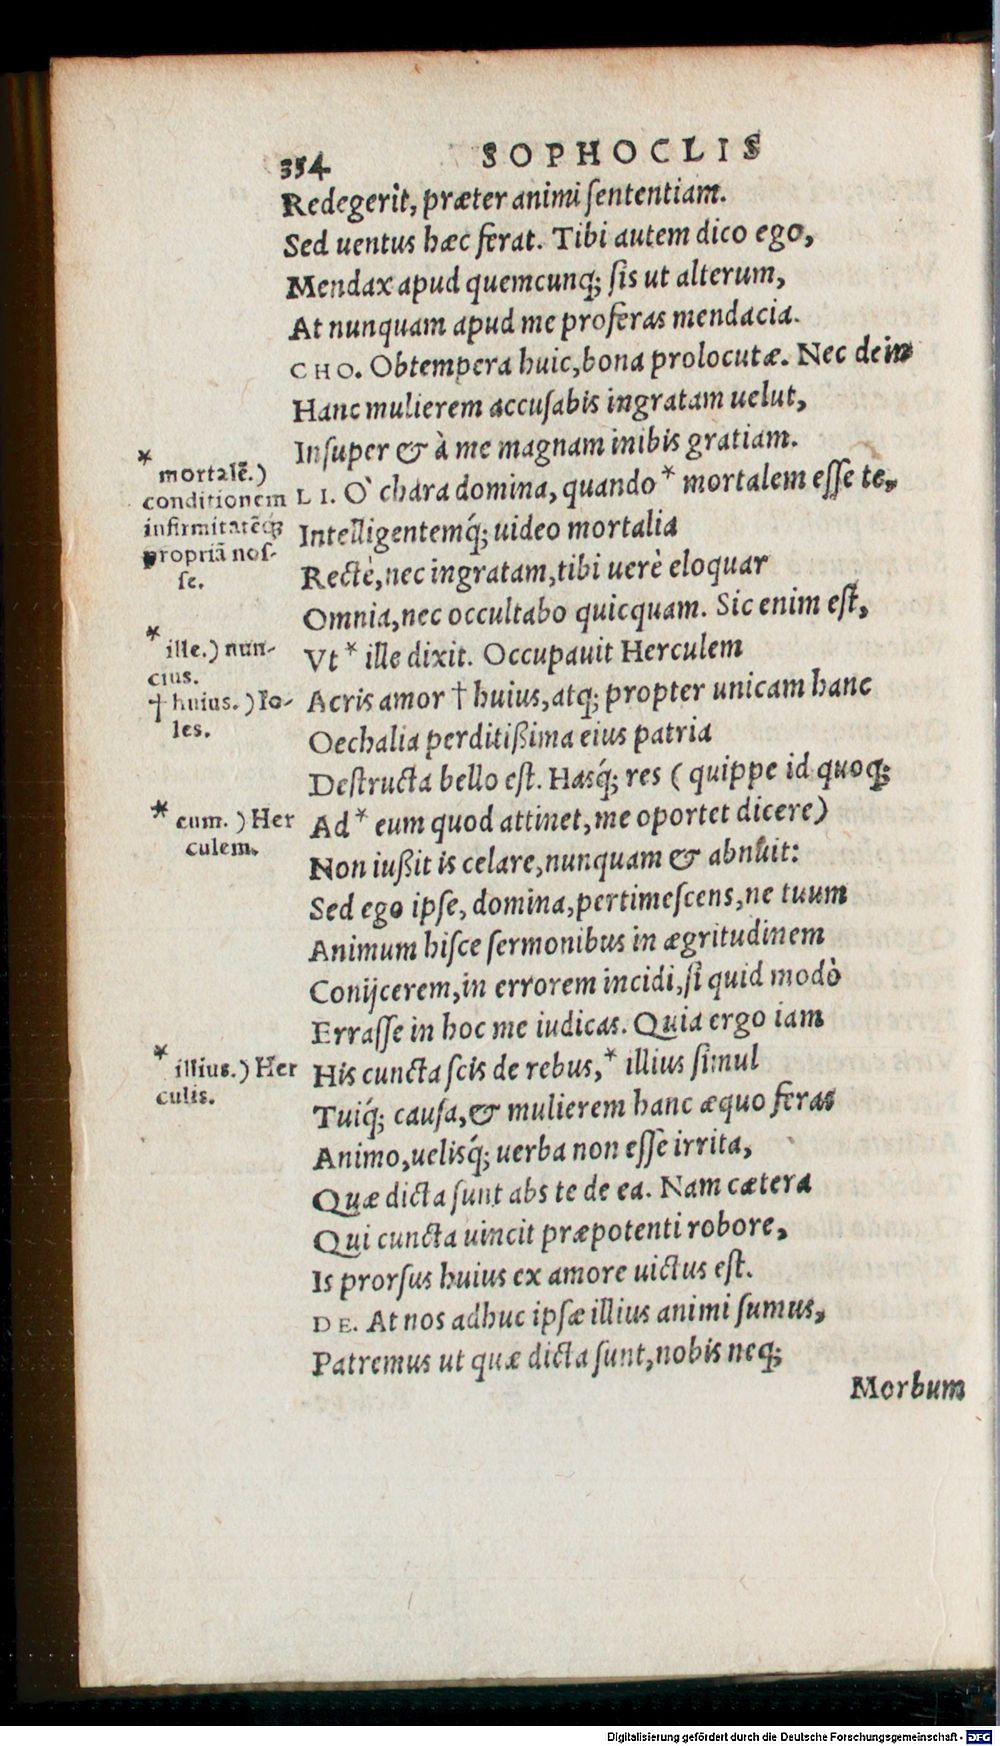 354 SOPHOCLIS
Redegerit, præter animi ſententiam.
Sed uentus hæc ferat. Tibi autem dico ego,
Mendax apud quemcunq́; ſis ut alterum,
At nunquam apud me proferas mendacia.
CHO. Obtempera huic, bona prolocutæ. Nec dein
Hanc mulierem accuſabis ingratam uelut,
Inſuper & à me magnam inibis gratiam.
LI. O` chara domina, quando * mortalem eſſe te,
Intelligentemq́; uideo mortalia
Rectè, nec ingratam, tibi uerè eloquar
Omnia, nec occultabo quicquam. Sic enim eſt,
Vt * ille dixit. Occupauit Herculem
Acris amor † huius, atq; propter unicam hanc
Oechalia perditißima eius patria
Deſtructa bello eſt. Hasq́; res (quippe id quoq;
Ad * eum quod attinet, me oportet dicere)
Non iußit is celare, nunquam & abnuit:
Sed ego ipſe, domina, pertimeſcens, ne tuum
Animum hiſce ſermonibus in ægritudinem
Conijcerem, in errorem incidi, ſi quid modò
Erraſſe in hoc me iudicas. Quia ergo iam
His cuncta ſcis de rebus, * illius ſimul
Tuiq́; cauſa, & mulierem hanc æquo feras
Animo, uelisq́; uerba non eſſe irrita,
Quæ dicta ſunt abs te de ea. Nam cætera
Qui cuncta uincit præpotenti robore,
Is prorſus huius ex amore uictus eſt.
DE. At nos adhuc ipſæ illius animi ſumus,
Patremus ut quæ dicta ſunt, nobis neq;
Morbum
*
mortalē.)
conditionem
infirmitatēq́;
propriā noſ-
ſe.
*
ille.) nun-
cius.
† huius.) Io-
les.
* eum.) Her
culem.
*
illius.) Her
culis.
Digitalisierung gefördert durch die Deutsche Forschungsgemeinschaft - DFG